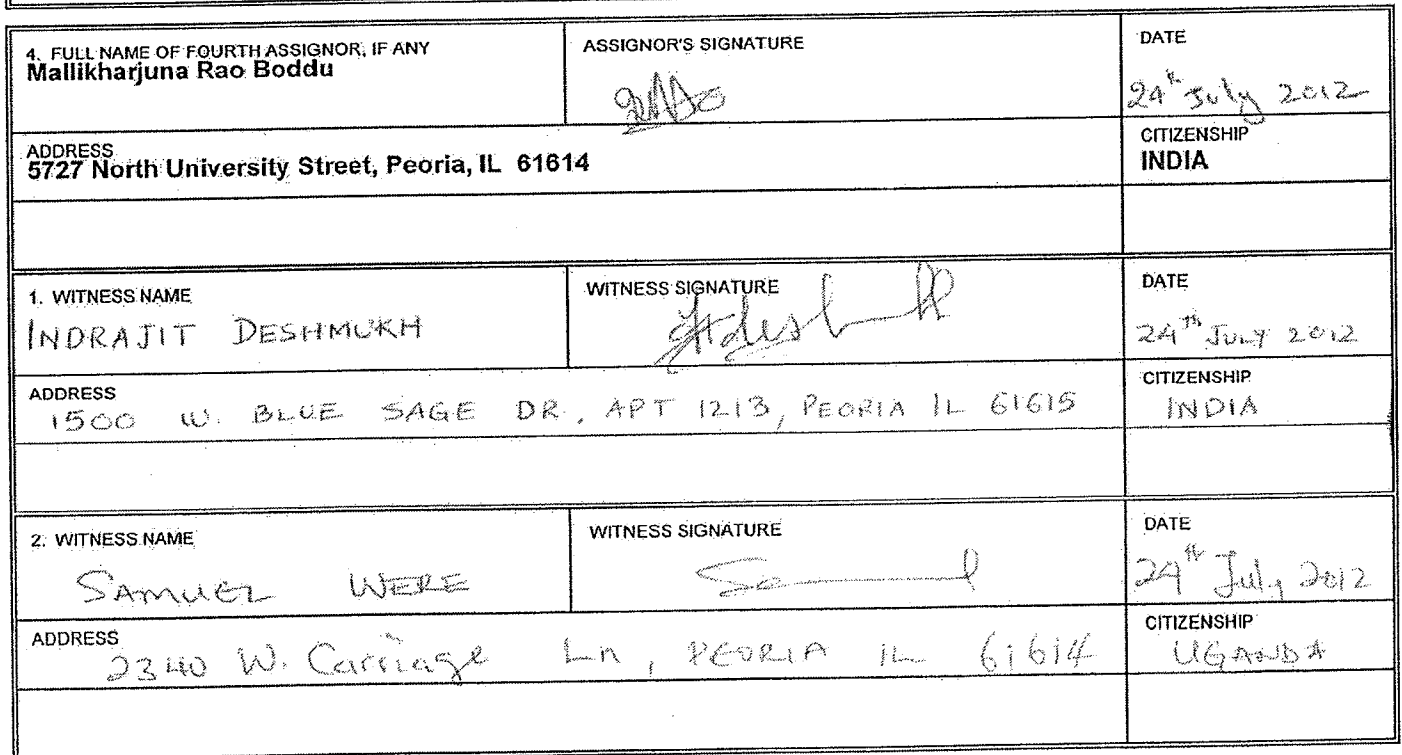 4. FULL NAME OF FOURTH ASSIGNOR, IF ANY
Mallikharjuna Rao Boddu
ASSIGNOR'S SIGNATURE
DATE
24th July 2012
ADDRESS
5727 North University Street, Peoria, IL 61614
CITIZENSHIP
INDIA
1. WITNESS NAME
INDRAJIT DESHMUKH
WITNESS SIGNATURE
DATE
24TH JULY 2012
ADDRESS
1500 W. BLUE SAGE DR., APT 1213, PEORIA IL 61615
CITIZENSHIP
INDIA
2. WITNESS NAME
SAMUEL WERE
WITNESS SIGNATURE
DATE
24th July 2012
ADDRESS
2340 W. Carriage Ln, PEORIA IL 61614
CITIZENSHIP
UGANDA